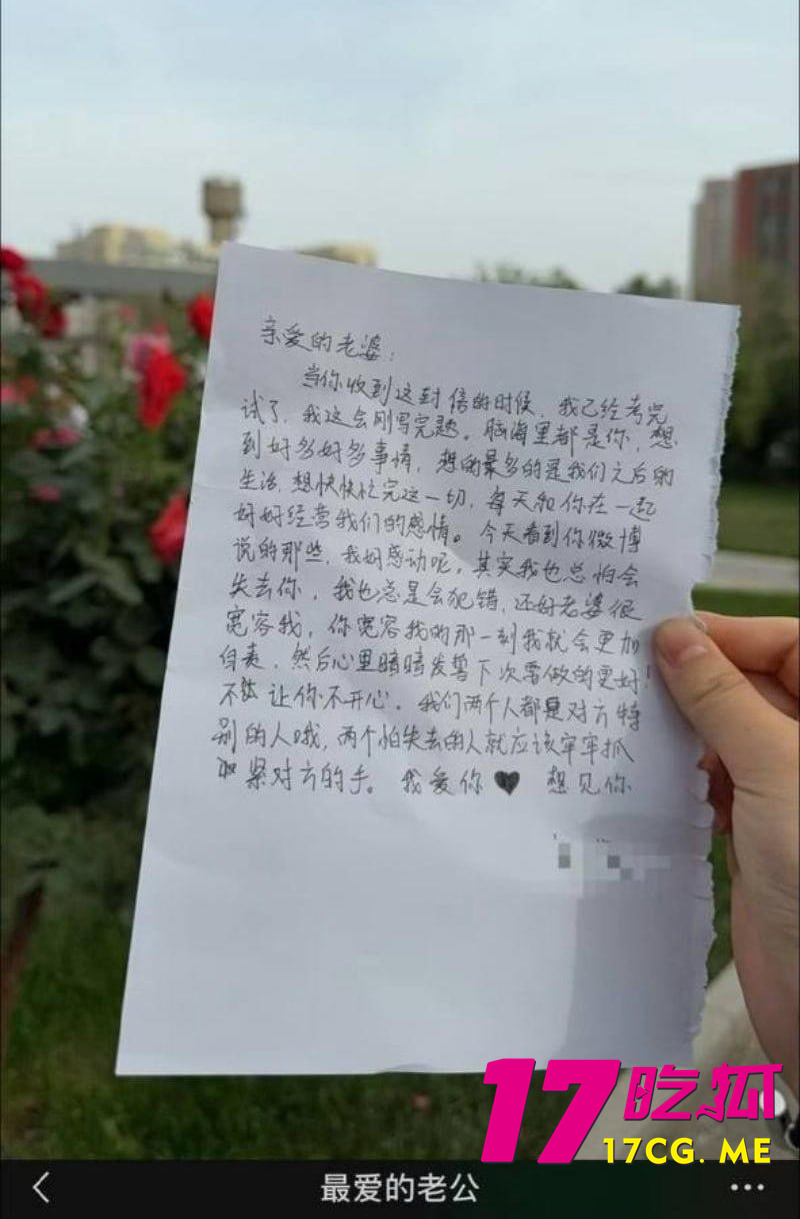 亲爱的老婆：
当你收到这封信的时候，我已经考完
试了，我这会刚写完题。脑海里都是你，想
到好多好多事情，想的最多的是我们之后的
生活，想快快忙完这一切，每天和你在一起
好好经营我们的感情。今天看到你微博
说的那些，我好感动呢，其实我也总怕会
失去你，我也总是会犯错，还好老婆很
宽容我，你宽容我的那一刻我就会更加
自责，然后心里暗暗发誓下次要做的更好！
不能让你不开心。我们两个人都是对方特
别的人哦，两个怕失去的人就应该牢牢抓
紧对方的手。我爱你♥ 想见你
17吃瓜
17CG.ME
最爱的老公